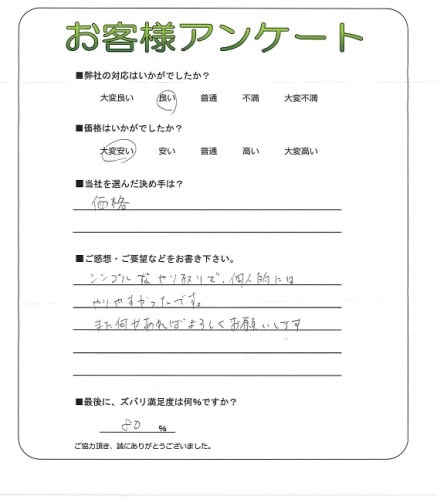 お客様アンケート
■弊社の対応はいかがでしたか?
大変良い 良い 普通 不満 大変不満
■価格はいかがでしたか?
大変安い 安い 普通 高い 大変高い
■当社を選んだ決め手は?
価格
■ご感想・ご要望などをお書き下さい。
シンプルなやり取りで、個人的には
やりやすかったです。
また何かあればよろしくお願いします
■最後に、ズバリ満足度は何%ですか?
80 %
ご協力頂き、誠にありがとうございました。